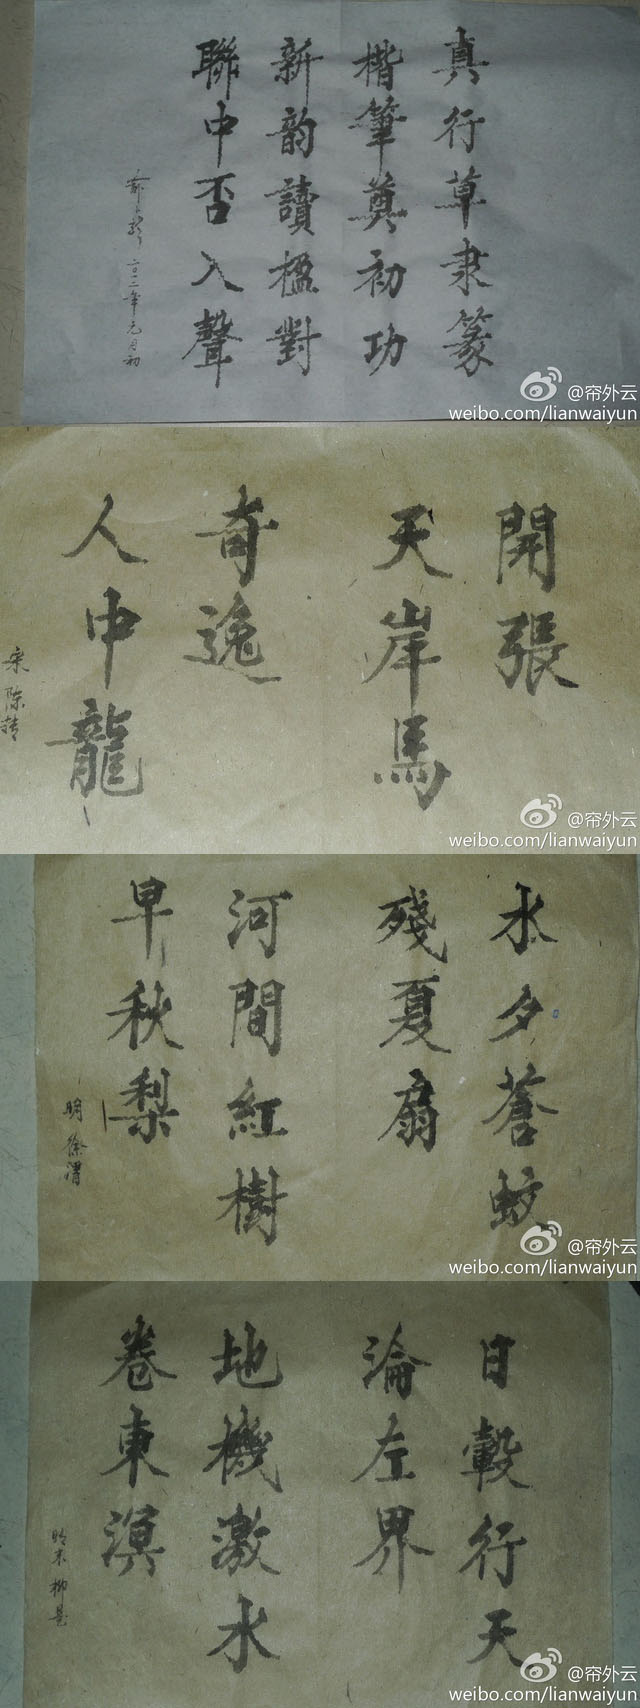 真行草隶篆
楷筆奠初功
新韵讀楹對
聯中否入聲
二〇一二年元月初
@帘外云
weibo.com/lianwaiyun
開張
天岸馬
奇逸
人中龍
宋 陈抟
@帘外云
weibo.com/lianwaiyun
水夕蒼蚊
殘夏扇
河間紅樹
早秋梨
明 徐渭
@帘外云
weibo.com/lianwaiyun
日轂行天
淪左界
地機激水
卷東溟
明末 柳是
@帘外云
weibo.com/lianwaiyun